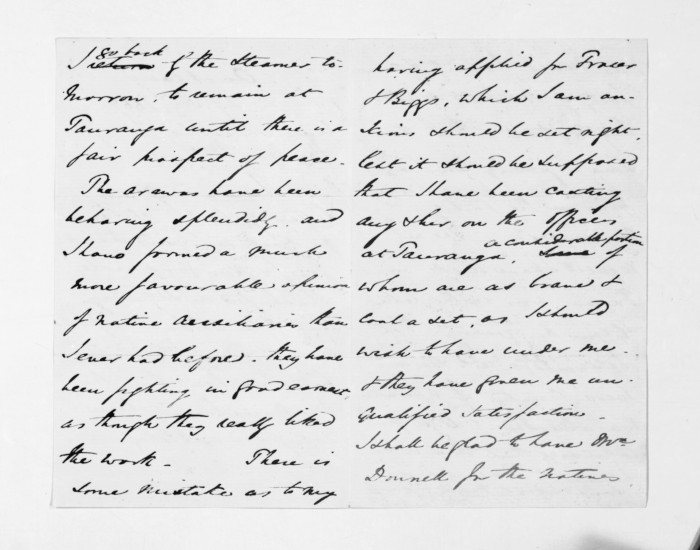 go back
I return by the Steamer to-
morrow, to remain at
Tauranga until there is a
fair prospect of peace.
The arawas have been
behaving splendidly and
I have formed a much
more favourable opinion
of native auxiliaries than
I ever had before. they have
been fighting in good earnest,
as though they really liked
the work - There is
some mistake as to my
having applied for Fraser
& Biggs, which I am an-
xious should be set right,
lest it should be supposed
that I have been casting
any slur on the officers
a considerable portion
at Tauranga, some of
whom are as brave &
cool a set, as I should
wish to have under me.
& they have given me un-
qualified satisfaction -
I shall be glad to have
Donnell for the Natives